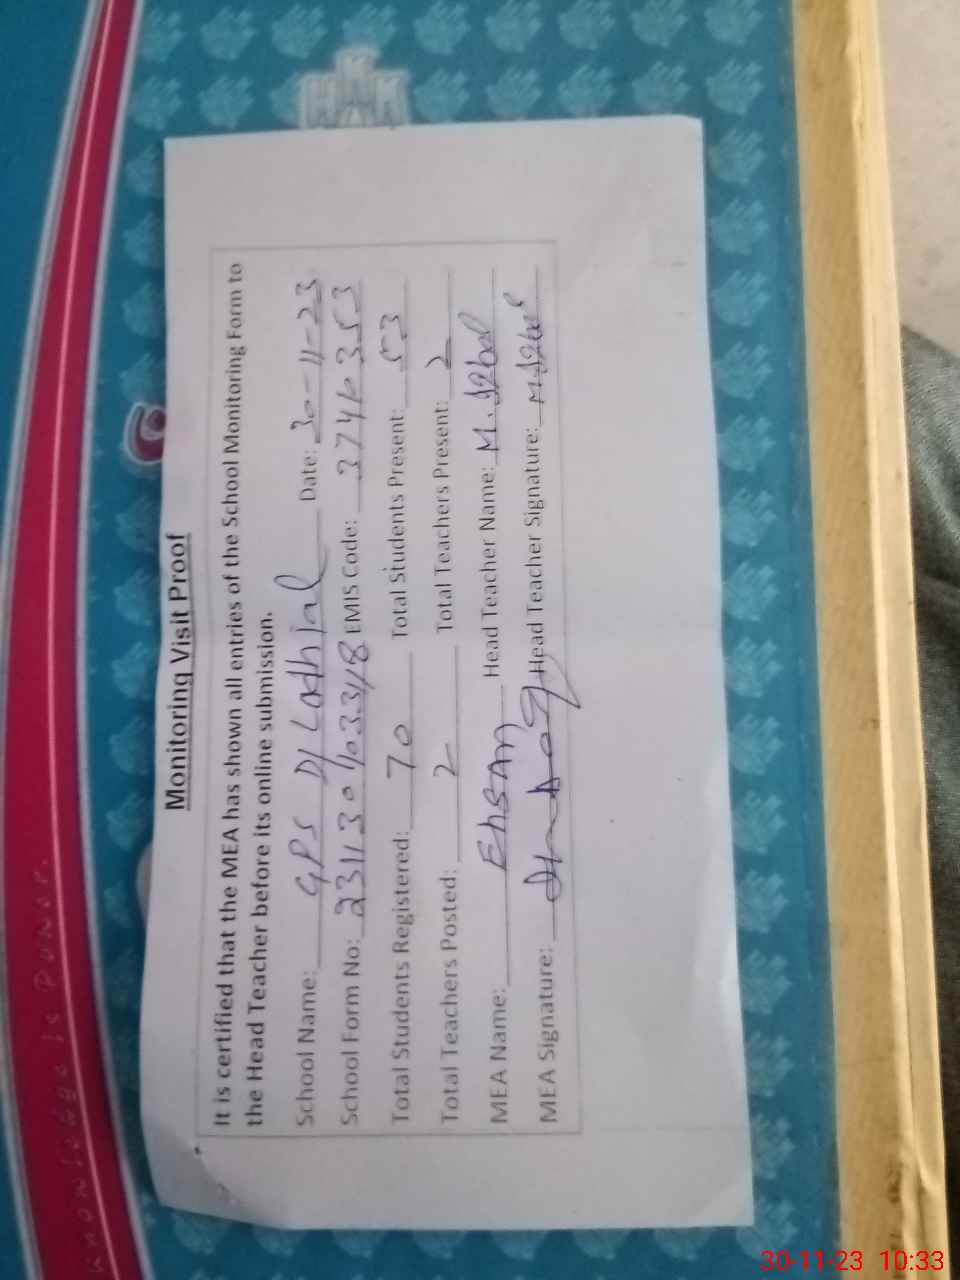 Monitoring Visit Proof
It is certified that the MEA has shown all entries of the School Monitoring Form to
the Head Teacher before its online submission.
School Name: GPS D/Ladhjal Date: 30-11-23
School Form No: EMIS Code: 37410353
Total Students Registered: 70 Total Students Present: 53
Total Teachers Posted: 2 Total Teachers Present: 2
MEA Name: Ehsan Head Teacher Name: M.
MEA Signature: Head Teacher Signature: M.
Knowledge is Power.
30-11-23 10:33